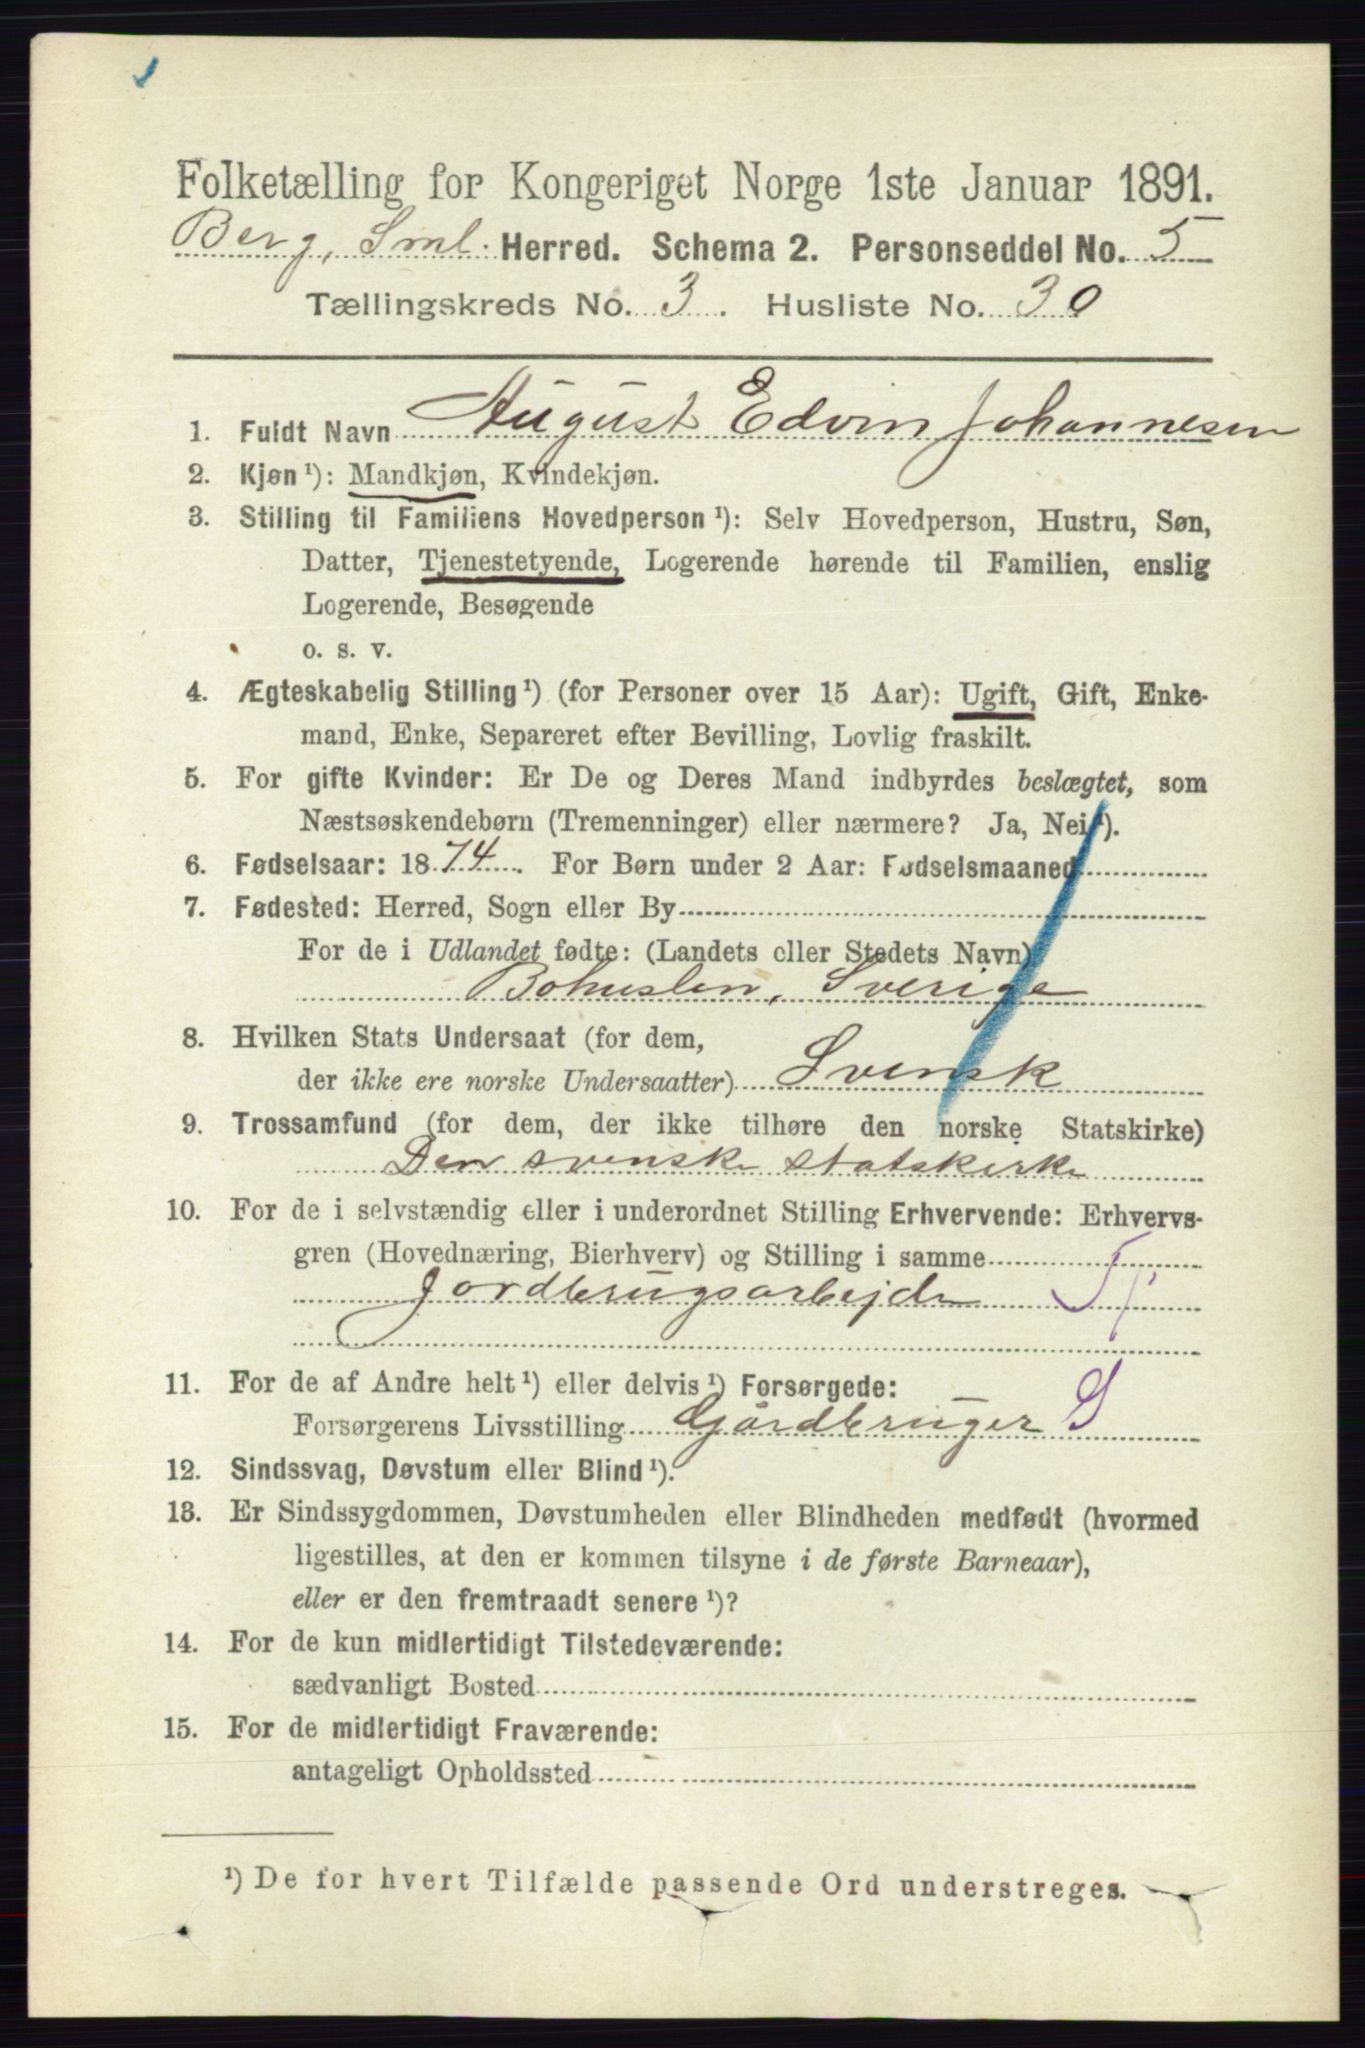 Folketælling for Kongeriget Norge 1ste Januar 1891.
Berg, Sml. Herred. Schema 2. Personseddel No. 5
Tællingskreds No. 3. Husliste No. 30
1. Fuldt Navn August Edvin Johannesen
2. Kjøn ¹): Mandkjøn, Kvindekjøn.
3. Stilling til Familiens Hovedperson ¹): Selv Hovedperson, Hustru, Søn,
Datter, Tjenestetyende, Logerende hørende til Familien, enslig
Logerende, Besøgende
o. s. v.
4. Ægteskabelig Stilling ¹) (for Personer over 15 Aar): Ugift, Gift, Enke-
mand, Enke, Separeret efter Bevilling, Lovlig fraskilt.
5. For gifte Kvinder: Er De og Deres Mand indbyrdes beslægtet, som
Næstsøskendebørn (Tremenninger) eller nærmere? Ja, Nei ¹).
6. Fødselsaar: 1874. For Børn under 2 Aar: Fødselsmaaned
7. Fødested: Herred, Sogn eller By
For de i Udlandet fødte: (Landets eller Stedets Navn)
Bohuslen, Sverige
8. Hvilken Stats Undersaat (for dem,
der ikke ere norske Undersaatter) Svensk
9. Trossamfund (for dem, der ikke tilhøre den norske Statskirke)
Den svenske statskirke
10. For de i selvstændig eller i underordnet Stilling Erhvervende: Erhvervs-
gren (Hovednæring, Bierhverv) og Stilling i samme
Jordbrugsarbejde
11. For de af Andre helt ¹) eller delvis ¹) Forsørgede:
Forsørgerens Livsstilling Gårdbruger G
12. Sindssvag, Døvstum eller Blind ¹).
13. Er Sindssygdommen, Døvstumheden eller Blindheden medfødt (hvormed
ligestilles, at den er kommen tilsyne i de første Barneaar),
eller er den fremtraadt senere ¹)?
14. For de kun midlertidigt Tilstedeværende:
sædvanligt Bosted
15. For de midlertidigt Fraværende:
antageligt Opholdssted
¹) De for hvert Tilfælde passende Ord understreges.